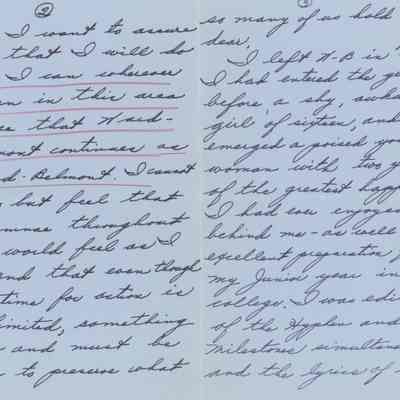 ②
I want to assure
that I will do
I can wherever
in this area
that Ward-
mont continues as
d-Belmont. I cannot
but feel that
throughout
world feel as I
and that even though
time for action is
limited, something
and must be
to preserve what
so many of us hold
dear.
I left W-B in
I had entered the
before a shy, awk
girl of sixteen, and
emerged a poised yo
woman with two y
of the greatest happ
I had ever enjoye
behind me - as well
excellent preparation
my Junior year in
college. I was edi
of the Hyphen and
Milestones simultan
and the lyrics of